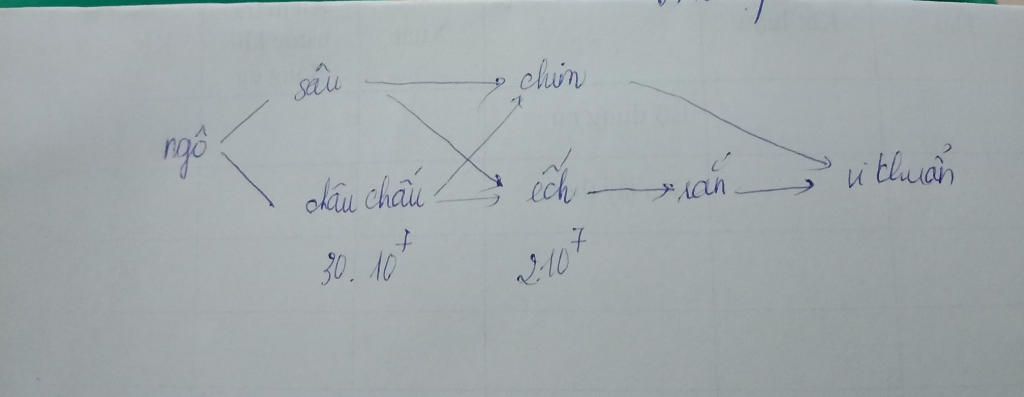 sâu chim
ngô
châu chấu ếch rắn vi khuẩn
30.10⁷ 2.10⁷